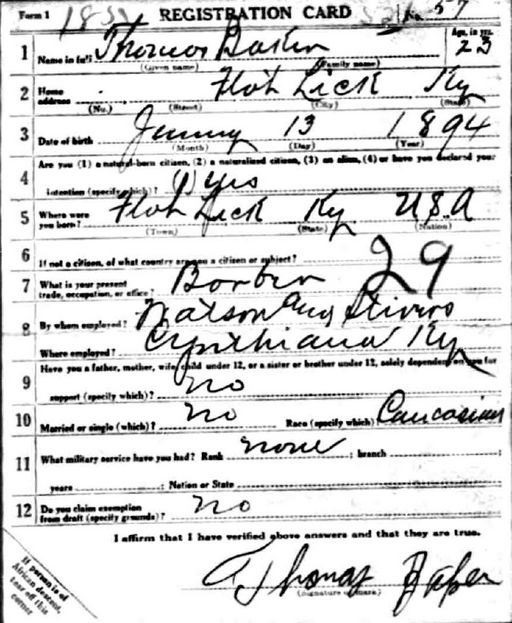 Form 1 183 REGISTRATION CARD No. 57
1 Name in full Thomas Baker Age, in yrs. 23
(Given name) (Family name)
2 Home address Flat Lick Ky
(No.) (Street) (City) (State)
3 Date of birth 13 1894
(Month) (Day) (Year)
Are you (1) a natural-born citizen, (2) a naturalized citizen, (3) an alien, (4) or have you declared your
4 intention (specify which)? (1) yes
5 Where were you born? Flat Lick Ky U S A
(Town) (State) (Nation)
6 If not a citizen, of what country are you a citizen or subject?
7 What is your present trade, occupation, or office? Barber 29
8 By whom employed? Watson Stivers
Where employed? Cynthiana Ky
Have you a father, mother, wife, child under 12, or a sister or brother under 12, solely dependent on you for
9 support (specify which)? no
10 Married or single (which)? no Race (specify which) Caucasian
11 What military service have you had? Rank none ; branch
years ; Nation or State
12 Do you claim exemption from draft (specify grounds)? no
I affirm that I have verified above answers and that they are true.
Thomas Baker
(Signature or mark)
If person is of
African descent,
tear off this
corner